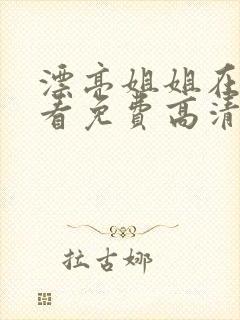 漂亮姐姐在
看免费高清
拉古娜